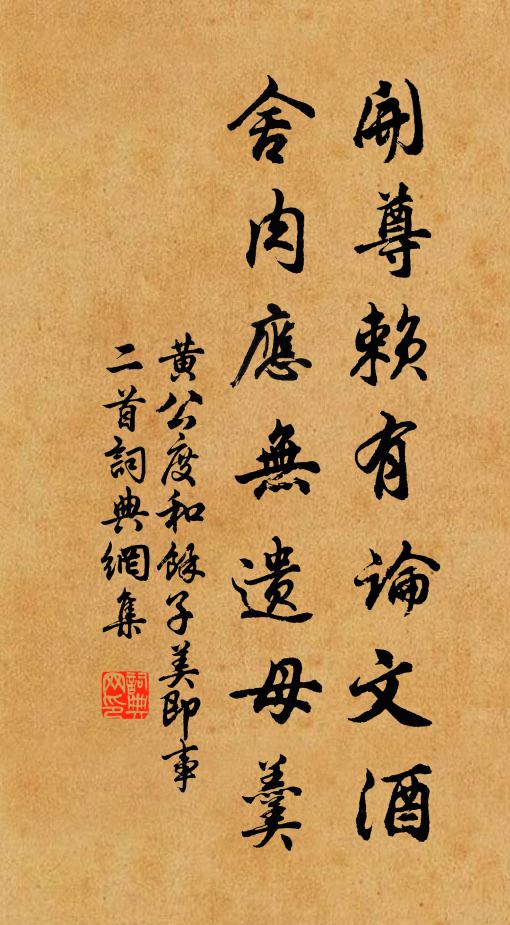 開尊賴有論文酒
舍肉應無遺母羹
黄公度和餘子美即事
二首詞典網集
詞典網印